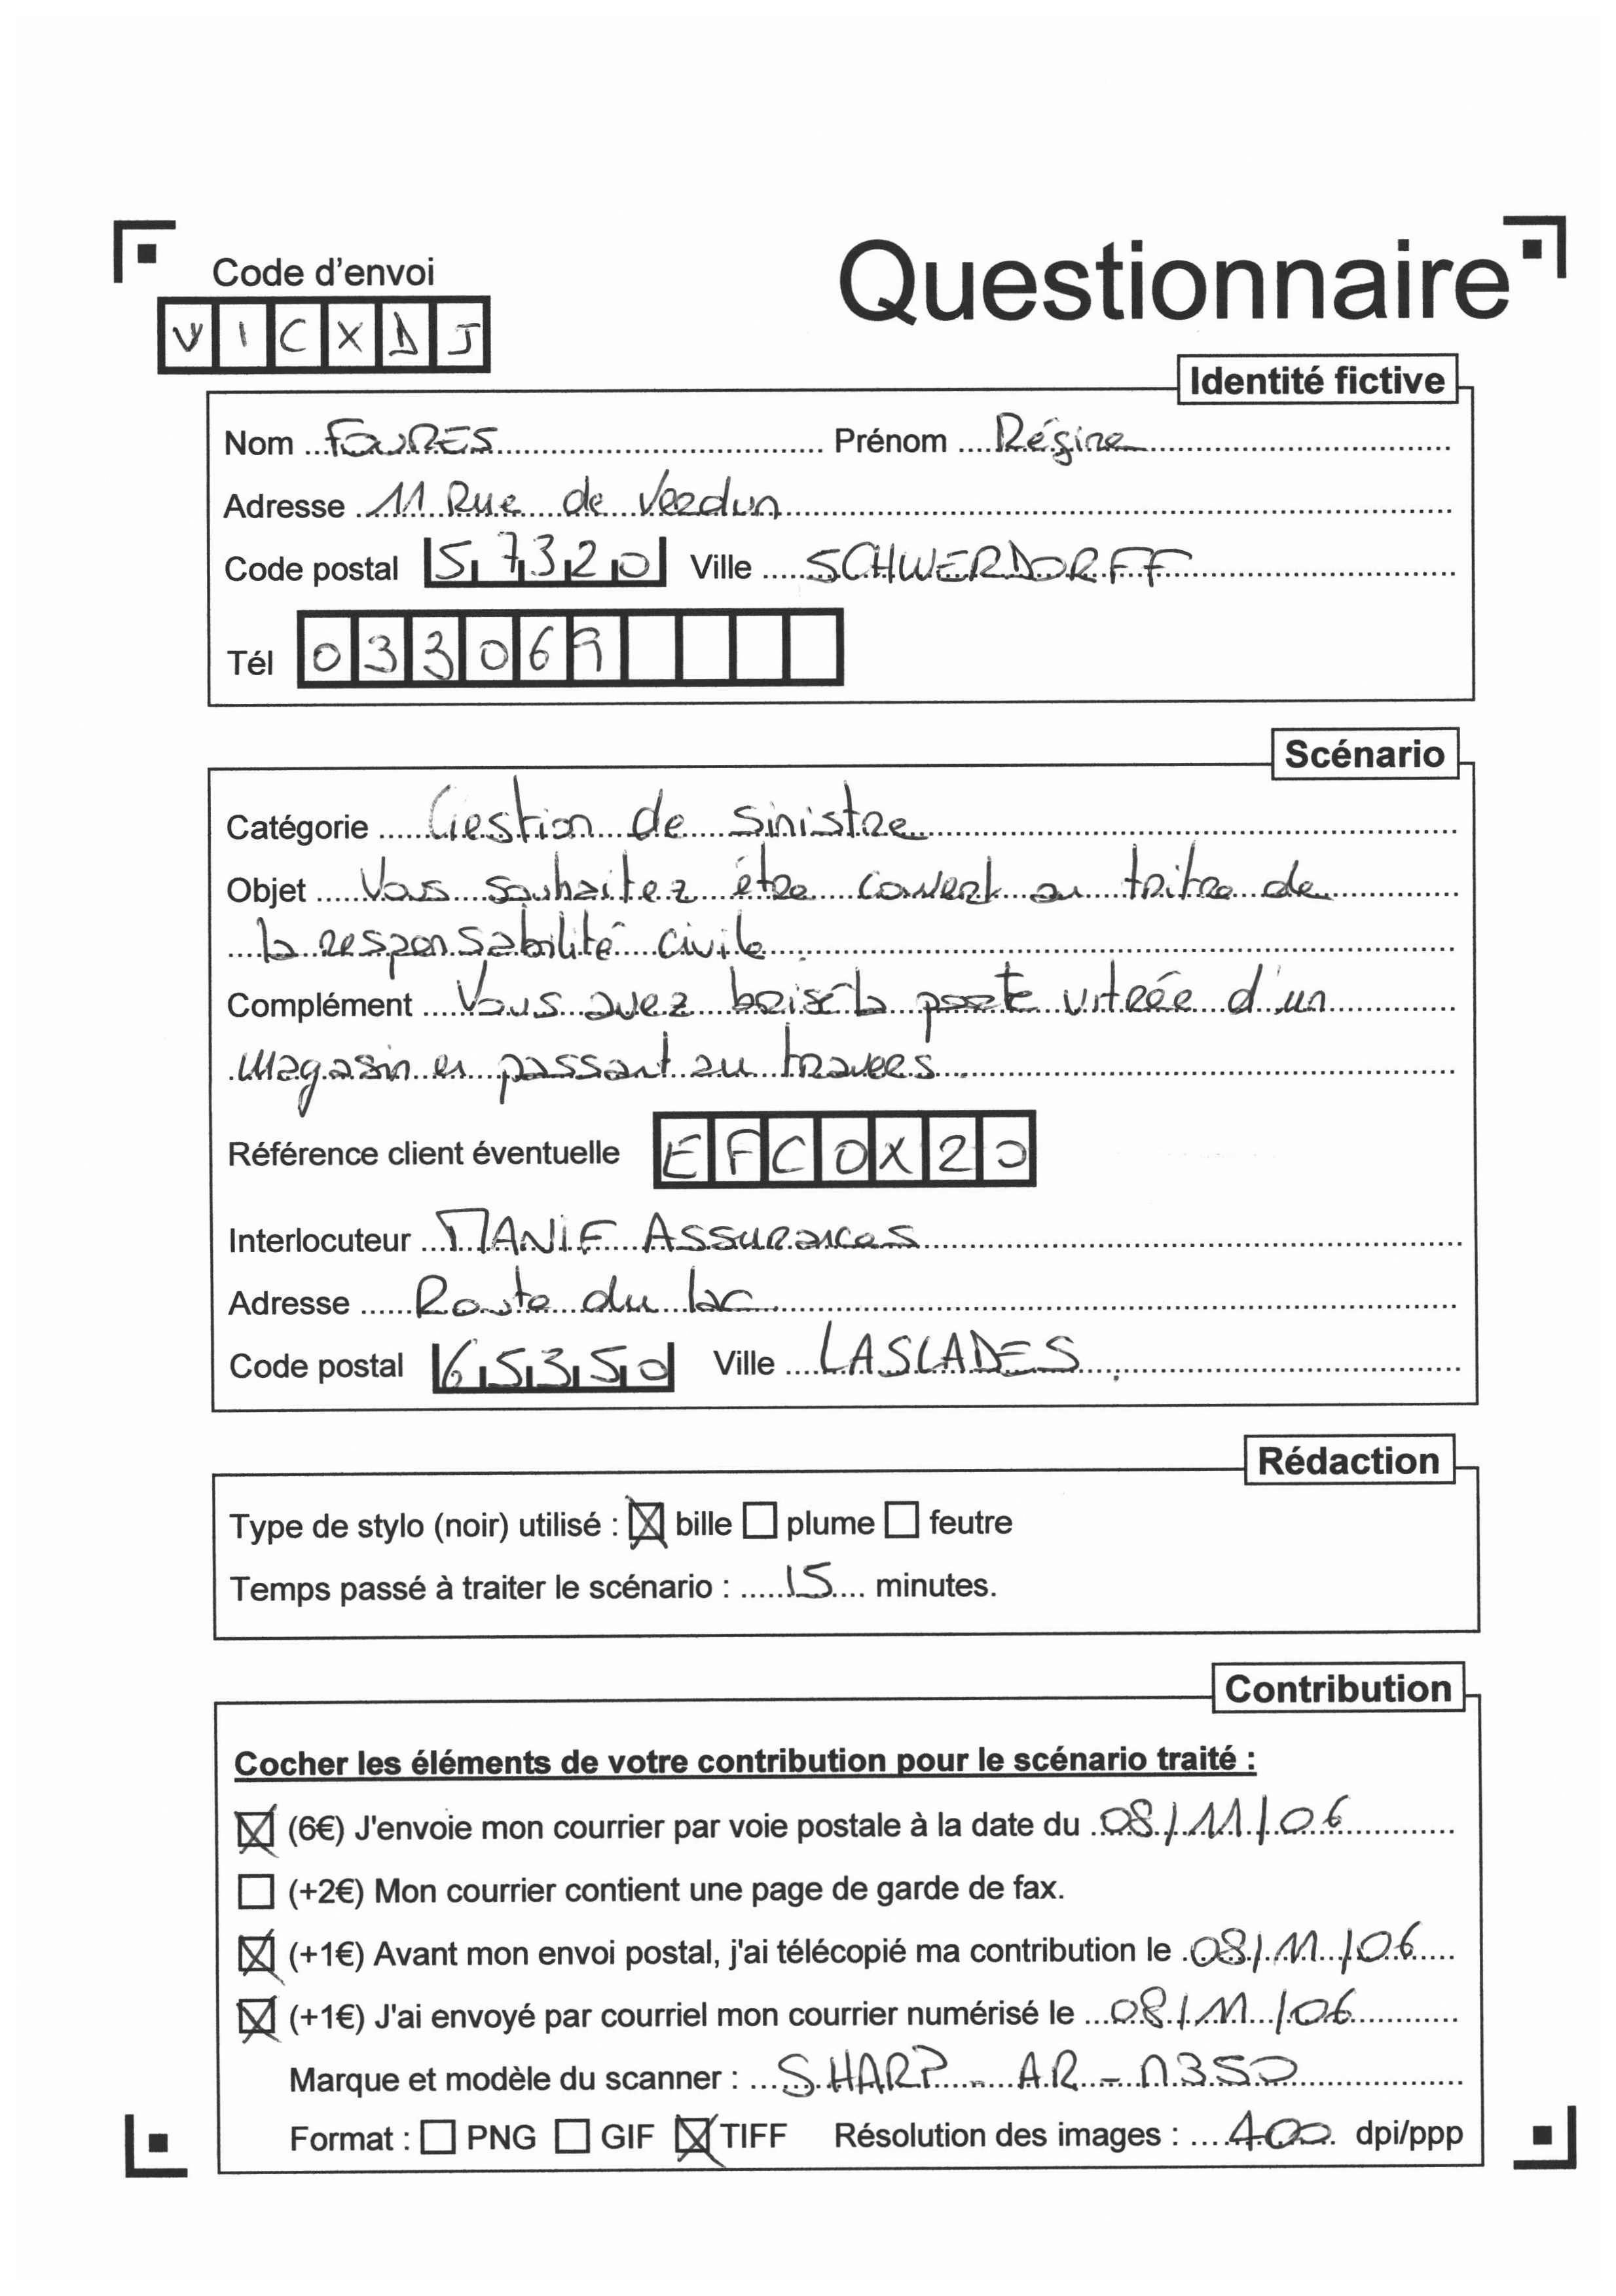 Code d'envoi
Questionnaire
V I C X D J
Identité fictive
Nom FOURES Prénom Régine
Adresse 11 Rue de Verdun
Code postal 57320 Ville SCHWERDORFF
Tél 033069
Scénario
Catégorie Gestion de sinistre
Objet Vous souhaitez être couvert au tritre de
la responsabilité civile.
Complément Vous avez brisé la porte vitrée d'un
magasin en passant au travers.
Référence client éventuelle EFC0X20
Interlocuteur MANIF Assurances
Adresse Route du lac.
Code postal 65350 Ville LASLADES.
Rédaction
Type de stylo (noir) utilisé : ☒ bille ☐ plume ☐ feutre
Temps passé à traiter le scénario : 15 minutes.
Contribution
Cocher les éléments de votre contribution pour le scénario traité :
☒ (6€) J'envoie mon courrier par voie postale à la date du 08/11/06
☐ (+2€) Mon courrier contient une page de garde de fax.
☒ (+1€) Avant mon envoi postal, j'ai télécopié ma contribution le 08/11/06
☒ (+1€) J'ai envoyé par courriel mon courrier numérisé le 08/11/06
Marque et modèle du scanner : SHARP - AR - M350
Format : ☐ PNG ☐ GIF ☒ TIFF Résolution des images : 400 dpi/ppp